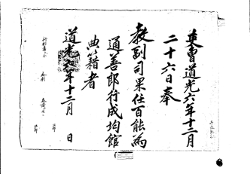 吏曹道光六年十二月
二十六日奉
敎副司果任百能爲
通善郞行成均館
典籍者
道光六年十二月 日